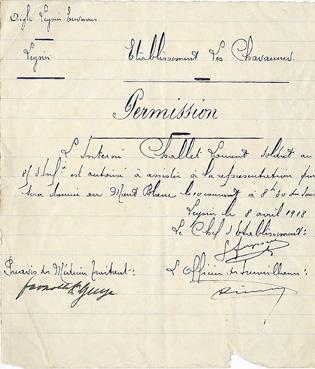 Aigle Leysin
Leysin
Etablissement Les Chavannes
Permission
L'Interné Challet Laurent soldat au
est autorisé à assister à la représentation qui
sera donnée au Mont Blanc à 8h30 du soir
Leysin le 8 avril 1918
Le Chef d'Etablissement:
Préavis du Médecin traitant:
L'Officier de Surveillance: